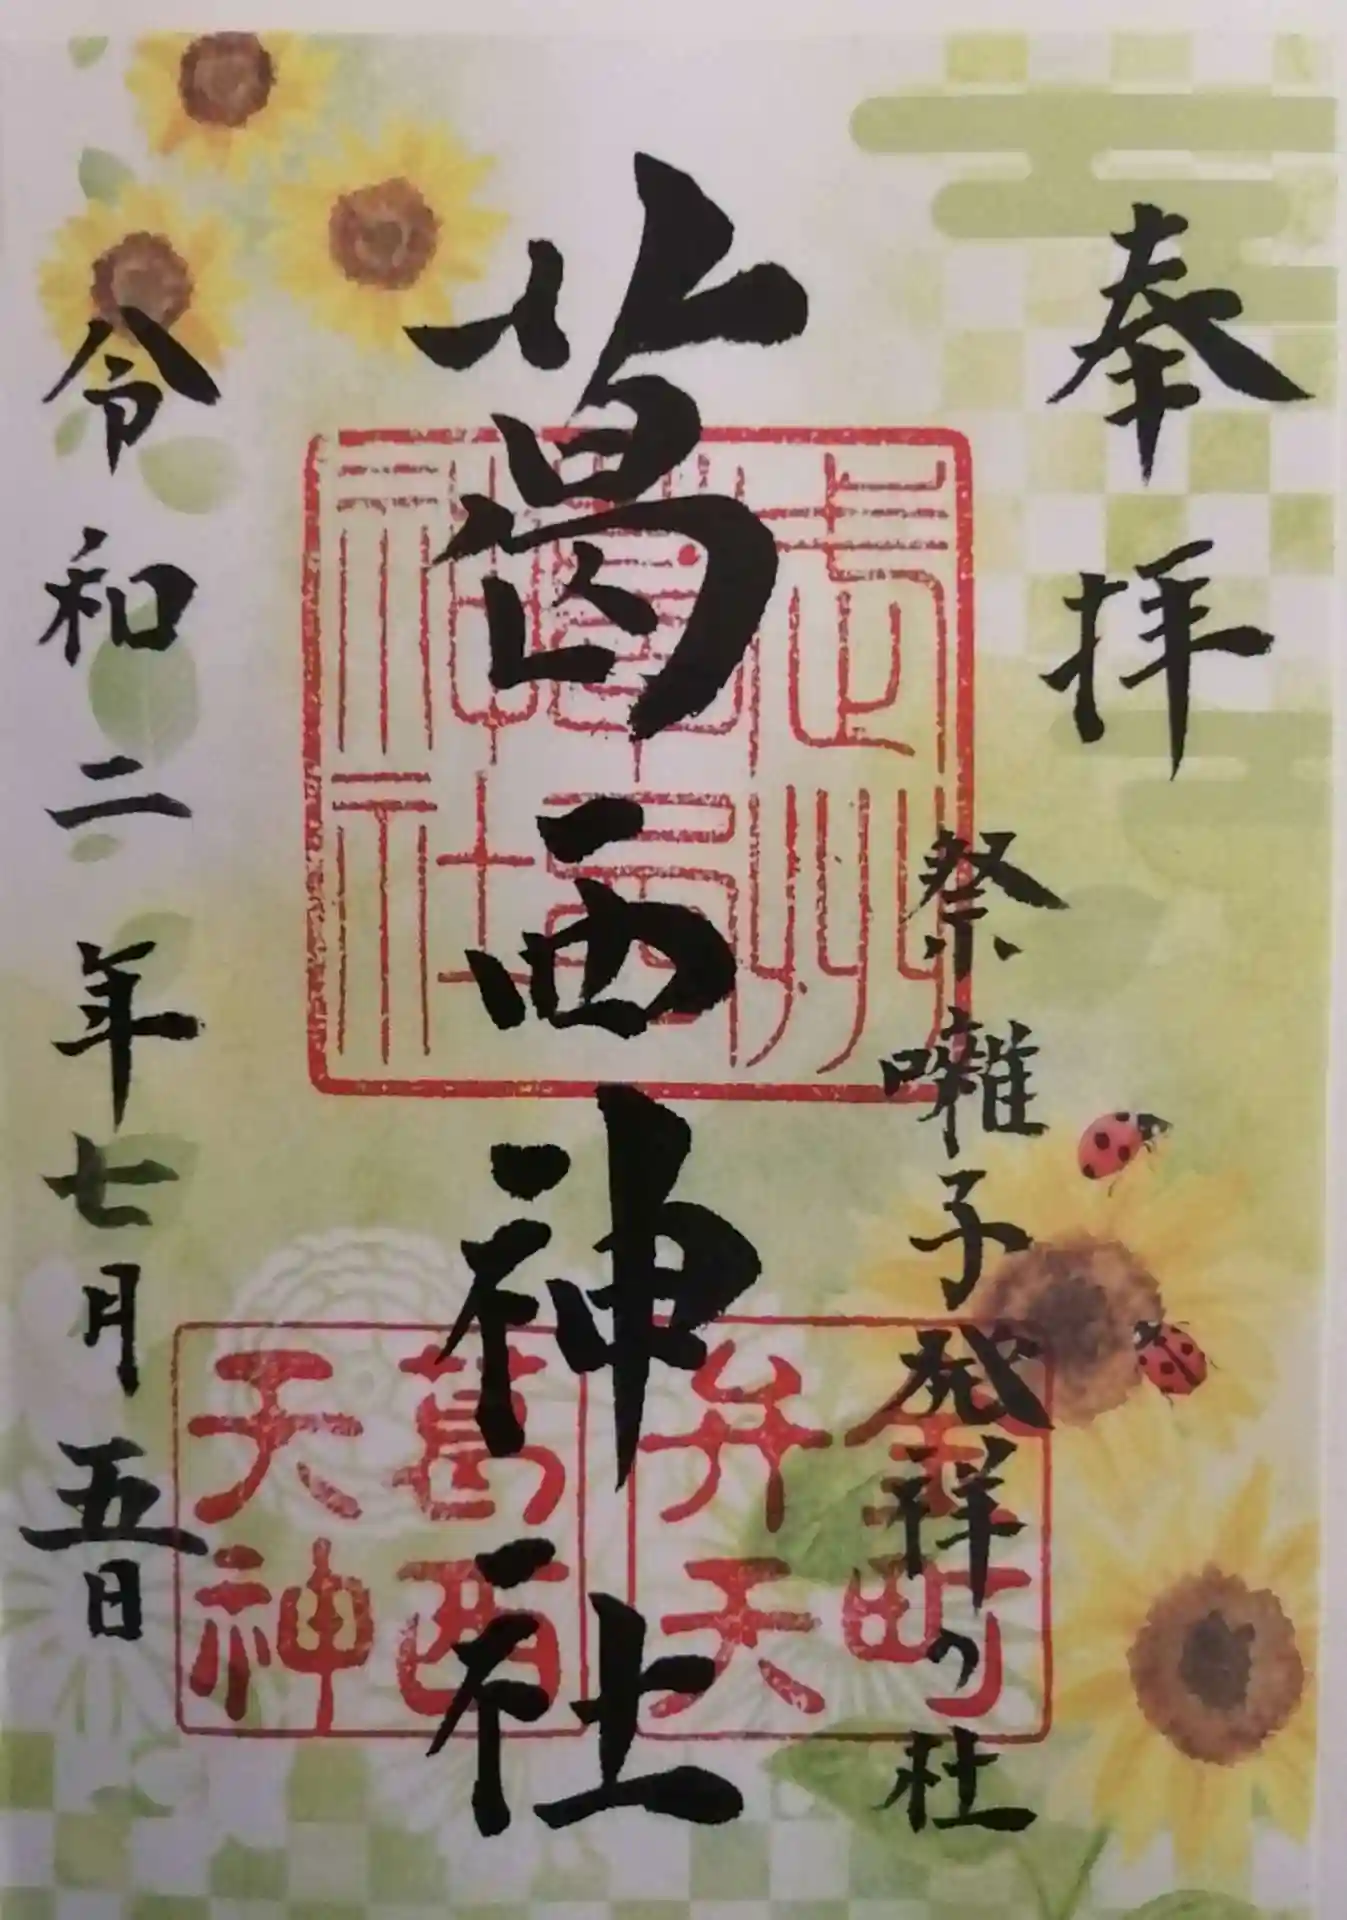 奉拝
祭囃子発祥の社
葛西神社
令和二年七月五日
葛西
天神
弁天